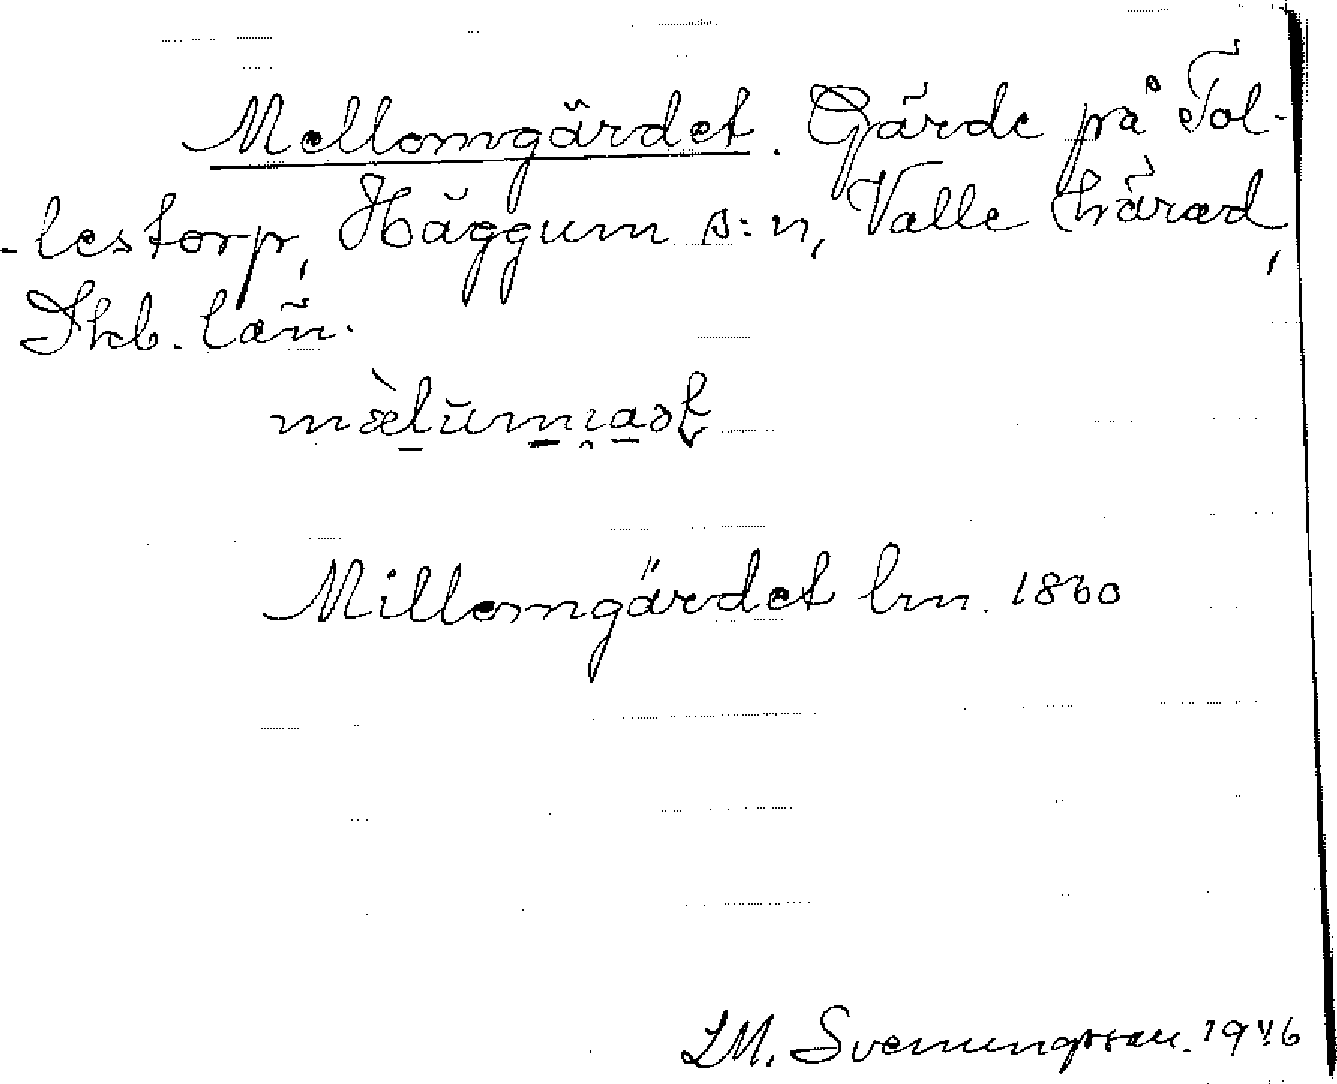 Mellomgärdet. Gärde på Tol-
-lestorp, Häggum s:n, Valle härad,
Skb. län.
Millomgärdet lm. 1860
LM. Svenungsson. 1946